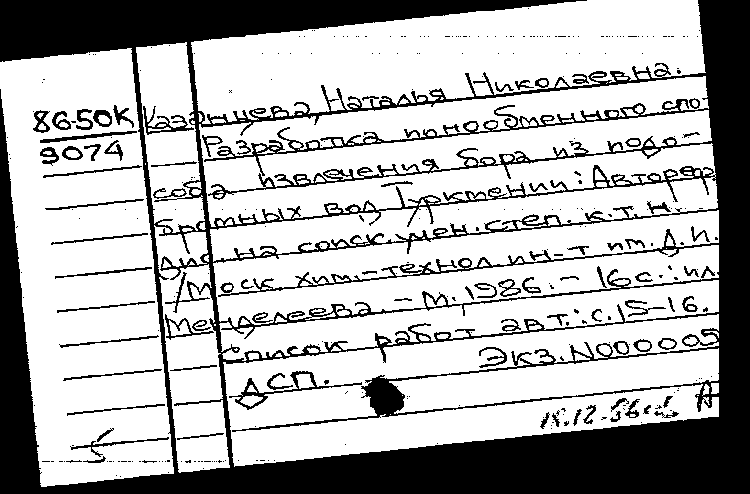 86-50К
9074
Казанцева, Наталья Николаевна.
Разработка ионообменного спо-
соба извлечения бора из йодо-
бромных вод Туркмении: Автореф.
дис. на соиск. учен. степ. к.т.н.
/Моск. хим.-технол. ин-т им. Д.И.
Менделеева. - М., 1986. - 16с.: ил.
Список работ авт.: с.15-16.
ДСП. Экз.N000005
А
5